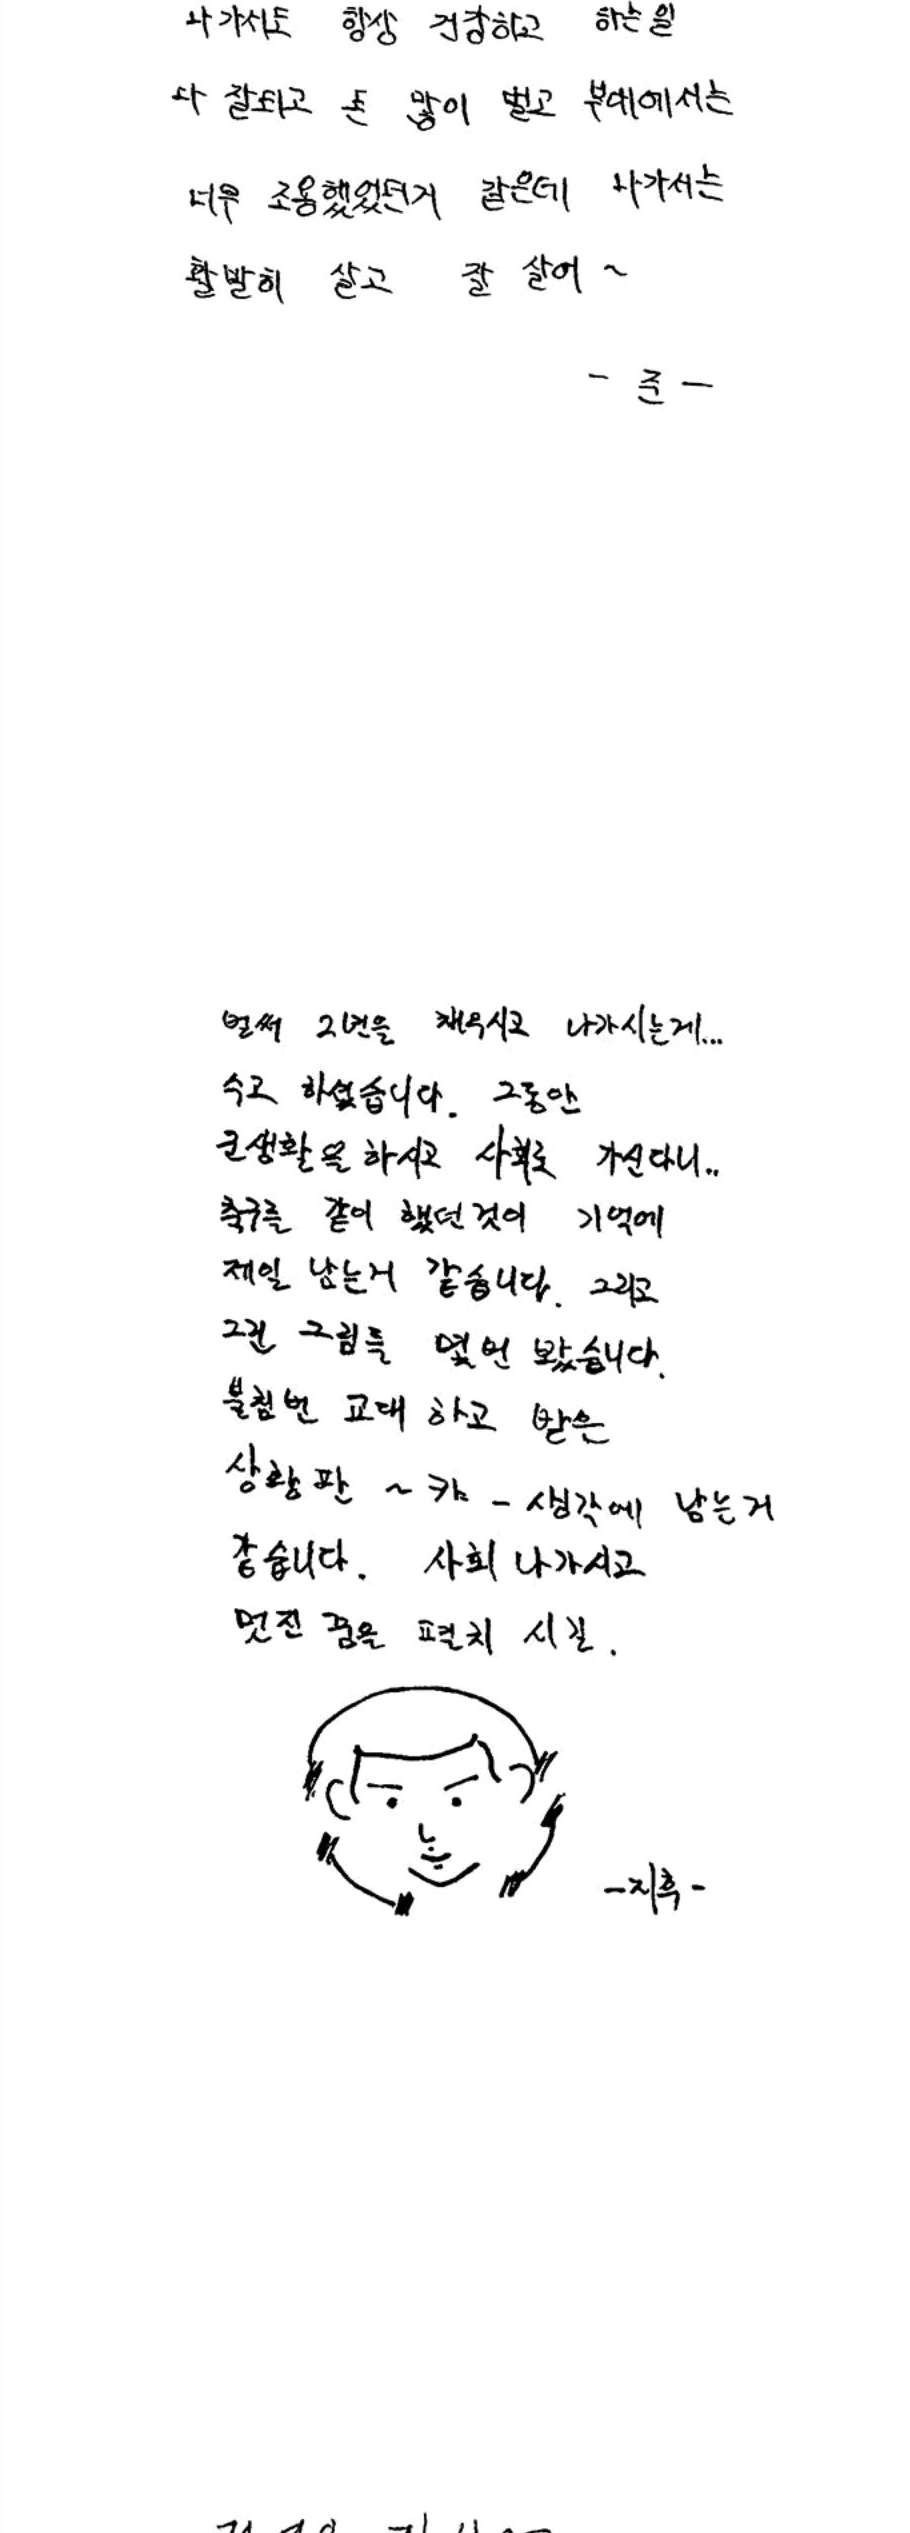 나가서도 항상 건강하고 하는일
다 잘되고 돈 많이 벌고 부대에서는
너무 조용했었던거 같은데 나가서는
활발히 살고 잘 살어~
- 준 -
벌써 2년을 채우시고 나가시는게...
수고 하셨습니다. 그동안
군생활을 하시고 사회로 가신다니..
축구를 같이 했던것이 기억에
제일 남는거 같습니다. 그리고
그런 그림들 몇번 봤습니다.
불침번 교대 하고 받은
상황판 ~ 캬 - 생각에 남는거
같습니다. 사회 나가시고
멋진 꿈을 펼치 시길.
-지훅-